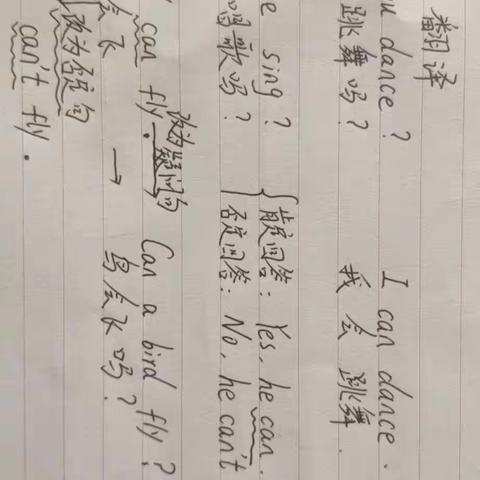 翻译
u dance ? I can dance .
跳舞吗? 我会跳舞.
e sing ? 肯定回答: Yes, he can.
唱歌吗? 否定回答: No, he can't
改为疑问句
can fly. Can a bird fly ?
会飞 → 鸟会飞吗?
改为否定句
can't fly .